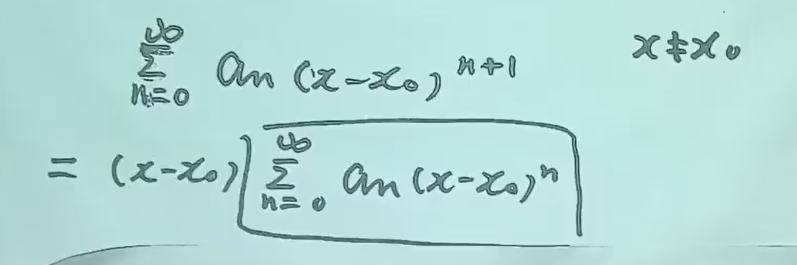 $\sum_{n=0}^{\infty} a_n (x-x_0)^{n+1}$ $x \neq x_0$
$= (x-x_0) \boxed{\sum_{n=0}^{\infty} a_n (x-x_0)^n}$